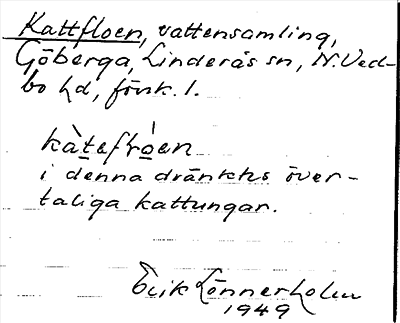 Kattfloen, vattensamling,
Göberga, Linderås sn, N. Ved-
bo hd, Jönk. l.
kàtefróen
i denna dränkts över-
taliga kattungar.
Erik Lönnerholm
1949